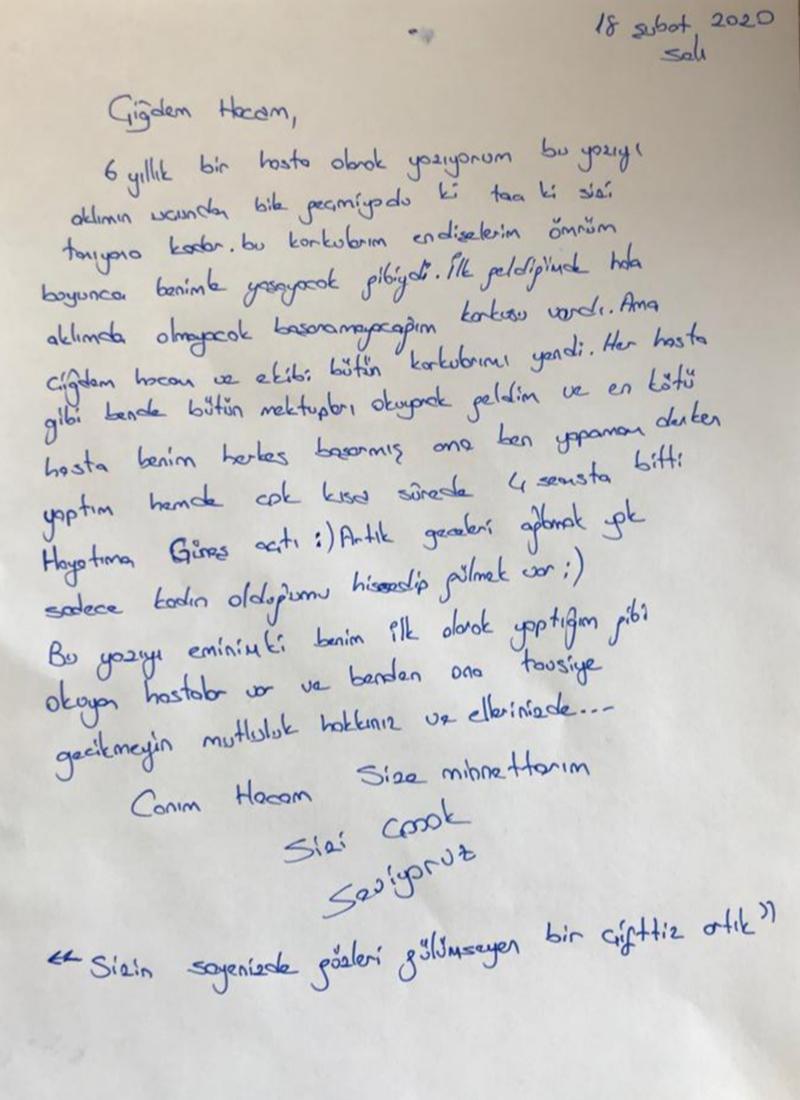 18 şubat 2020
Salı
Çiğdem Hocam,
6 yıllık bir hasta olarak yazıyorum bu yazıyı
aklımın ucundan bile geçmiyodu ki taa ki sizi
tanıyana kadar. bu korkularım endişelerim ömrüm
boyunca benimle yaşayacak gibiydi. İlk geldiğimde hala
aklımda olmayacak başaramayacağım korkusu vardı. Ama
Çiğdem hocam ve ekibi bütün korkularımı yendi. Her hasta
gibi bende bütün mektupları okuyarak geldim ve en kötü
hasta benim herkes başarmış ama ben yapamam derken
yaptım hemde çok kısa sürede 4 seansta bitti
Hayatıma Güneş açtı :) Artık geceleri ağlamak yok
sadece kadın olduğumu hissedip gülmek var :)
Bu yazıyı eminimki benim ilk olarak yaptığım gibi
okuyan hastalar var ve benden ona tavsiye
gecikmeyin mutluluk hakkınız ve ellerinizde...
Canım Hocam Size minnettarım
Sizi çoook
Seviyoruz
"Sizin sayenizde gözleri gülümseyen bir çifttiz artık"